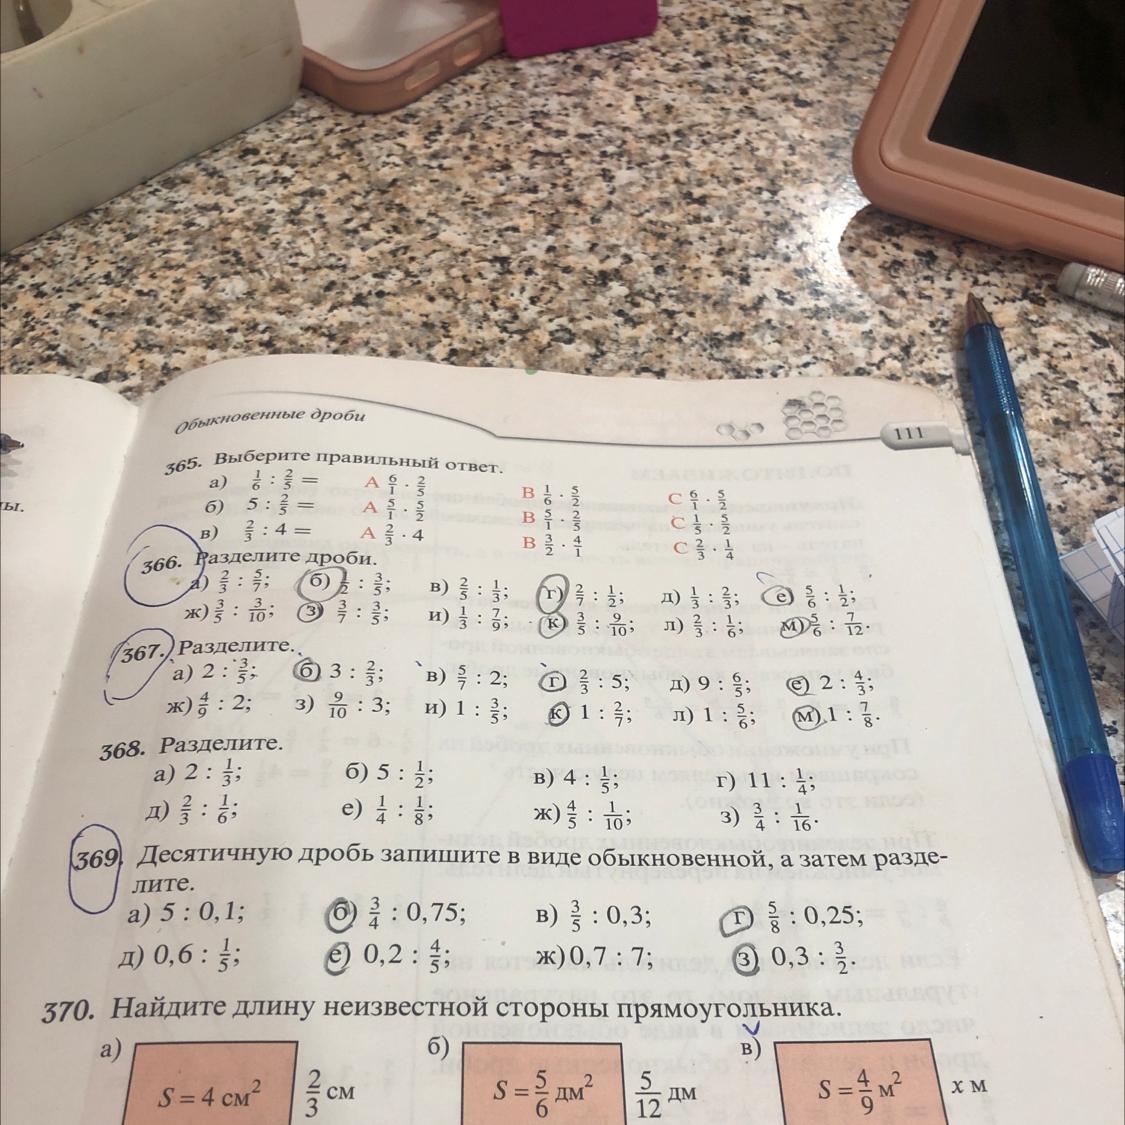 ы.
Обыкновенные дроби
111
365. Выберите правильный ответ.
а) 1/6 : 2/5 = A 6/1 · 2/5 B 1/6 · 5/2 C 6/1 · 5/2
б) 5 : 2/5 = A 5/1 · 5/2 B 5/1 · 2/5 C 1/5 · 5/2
в) 2/3 : 4 = A 2/3 · 4 B 3/2 · 4/1 C 2/3 · 1/4
366. Разделите дроби.
а) 2/3 : 5/7; б) 1/2 : 3/5; в) 2/5 : 1/3; г) 2/7 : 1/2; д) 1/3 : 2/3; е) 5/6 : 1/2;
ж) 3/5 : 3/10; з) 3/7 : 3/5; и) 1/3 : 7/9; к) 3/5 : 9/10; л) 2/3 : 1/6; м) 5/6 : 7/12.
367. Разделите.
а) 2 : 3/5; б) 3 : 2/3; в) 5/7 : 2; г) 2/3 : 5; д) 9 : 6/5; е) 2 : 4/3;
ж) 4/9 : 2; з) 9/10 : 3; и) 1 : 3/5; к) 1 : 2/7; л) 1 : 5/6; м) 1 : 7/8.
368. Разделите.
а) 2 : 1/3; б) 5 : 1/2; в) 4 : 1/5; г) 11 : 1/4;
д) 2/3 : 1/6; е) 1/4 : 1/8; ж) 4/5 : 1/10; з) 3/4 : 1/16.
369. Десятичную дробь запишите в виде обыкновенной, а затем разде-
лите.
а) 5 : 0,1; б) 3/4 : 0,75; в) 3/5 : 0,3; г) 5/8 : 0,25;
д) 0,6 : 1/5; е) 0,2 : 4/5; ж) 0,7 : 7; з) 0,3 : 3/2.
370. Найдите длину неизвестной стороны прямоугольника.
а) б) в)
S = 4 см² 2/3 см S = 5/6 дм² 5/12 дм S = 4/9 м² x м